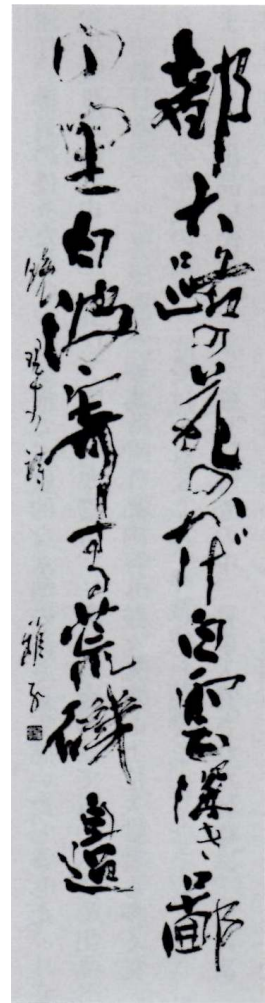 都大路の花のかげ白雲深き鄙
の里白波寄する荒磯邊
晩翠 詩